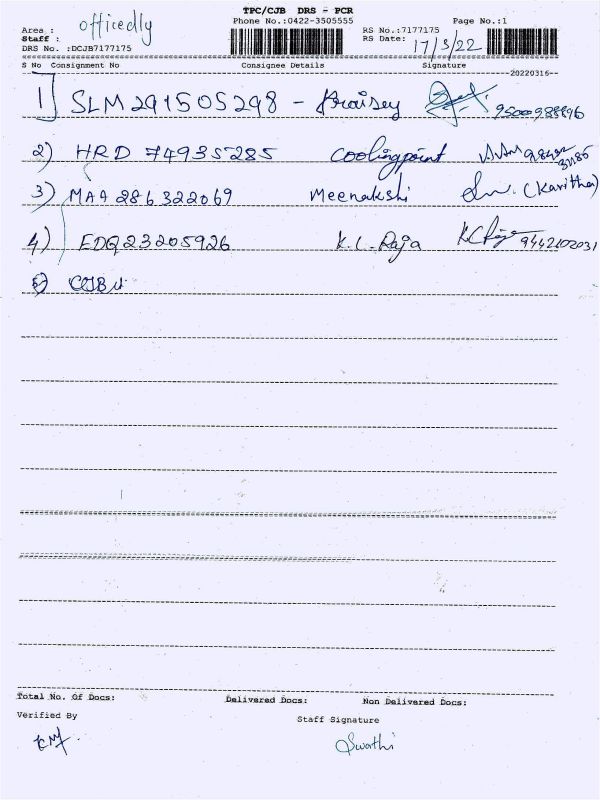 TPC/CJB DRS - PCR
Area : officedly Phone No.:0422-3505555 Page No.:1
Staff : RS No.:7177175
DRS No. :DCJB7177175 RS Date: 17/3/22
S No Consignment No Consignee Details Signature
--20220316--
1] SLM 291505298 - 9500988896
2) HRD 74935285 Coolingpoint
3) MAA 286322069 Meenakshi (Kavitha)
4) EDQ23205926 K.C.Raja KCRaja 9442102031
5) CJB
Total No. Of Docs: Delivered Docs: Non Delivered Docs:
Verified By Staff Signature
Swathi